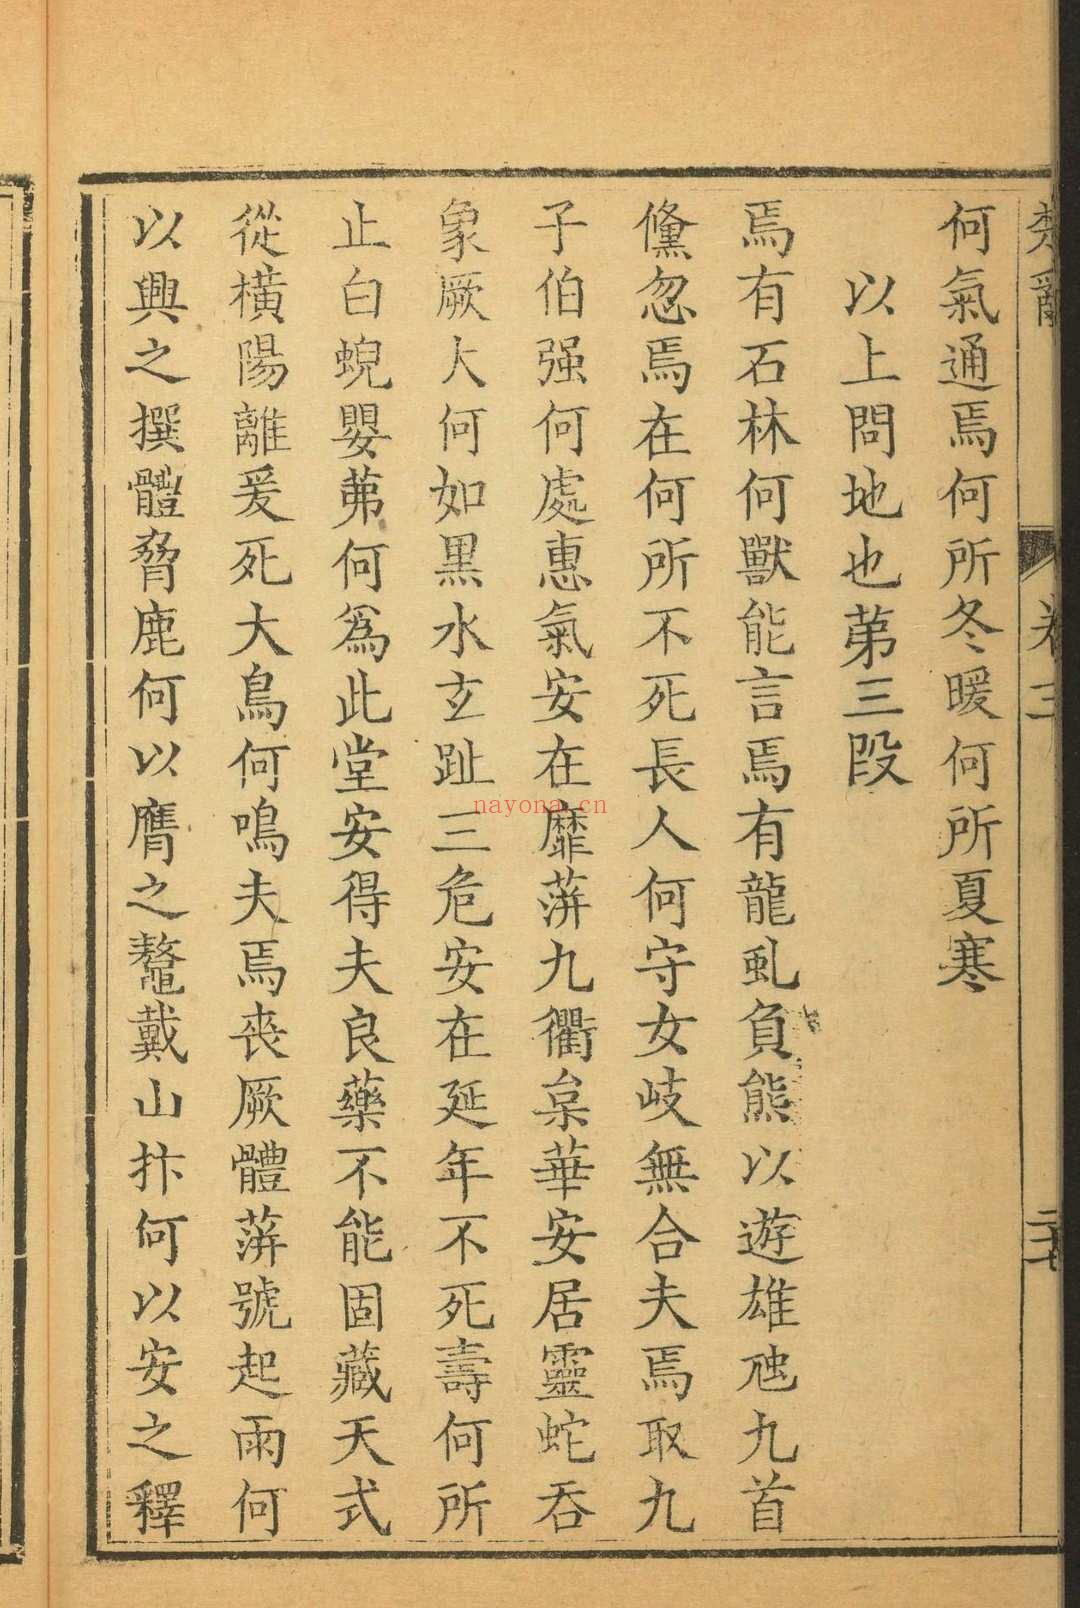 何氣通焉何所冬暖何所夏寒
以上問地也苐三段
焉有石林何獸能言焉有龍虬負熊以遊雄虺九首
儵忽焉在何所不死長人何守女岐無合夫焉取九
子伯强何處惠氣安在靡蓱九衢枲華安居靈蛇吞
象厥大何如黑水玄趾三危安在延年不死壽何所
止白蜺嬰茀何爲此堂安得夫良藥不能固藏天式
從橫陽離爰死大鳥何鳴夫焉喪厥體蓱號起雨何
以興之撰體脅鹿何以膺之鼇戴山抃何以安之釋
nayona.cn